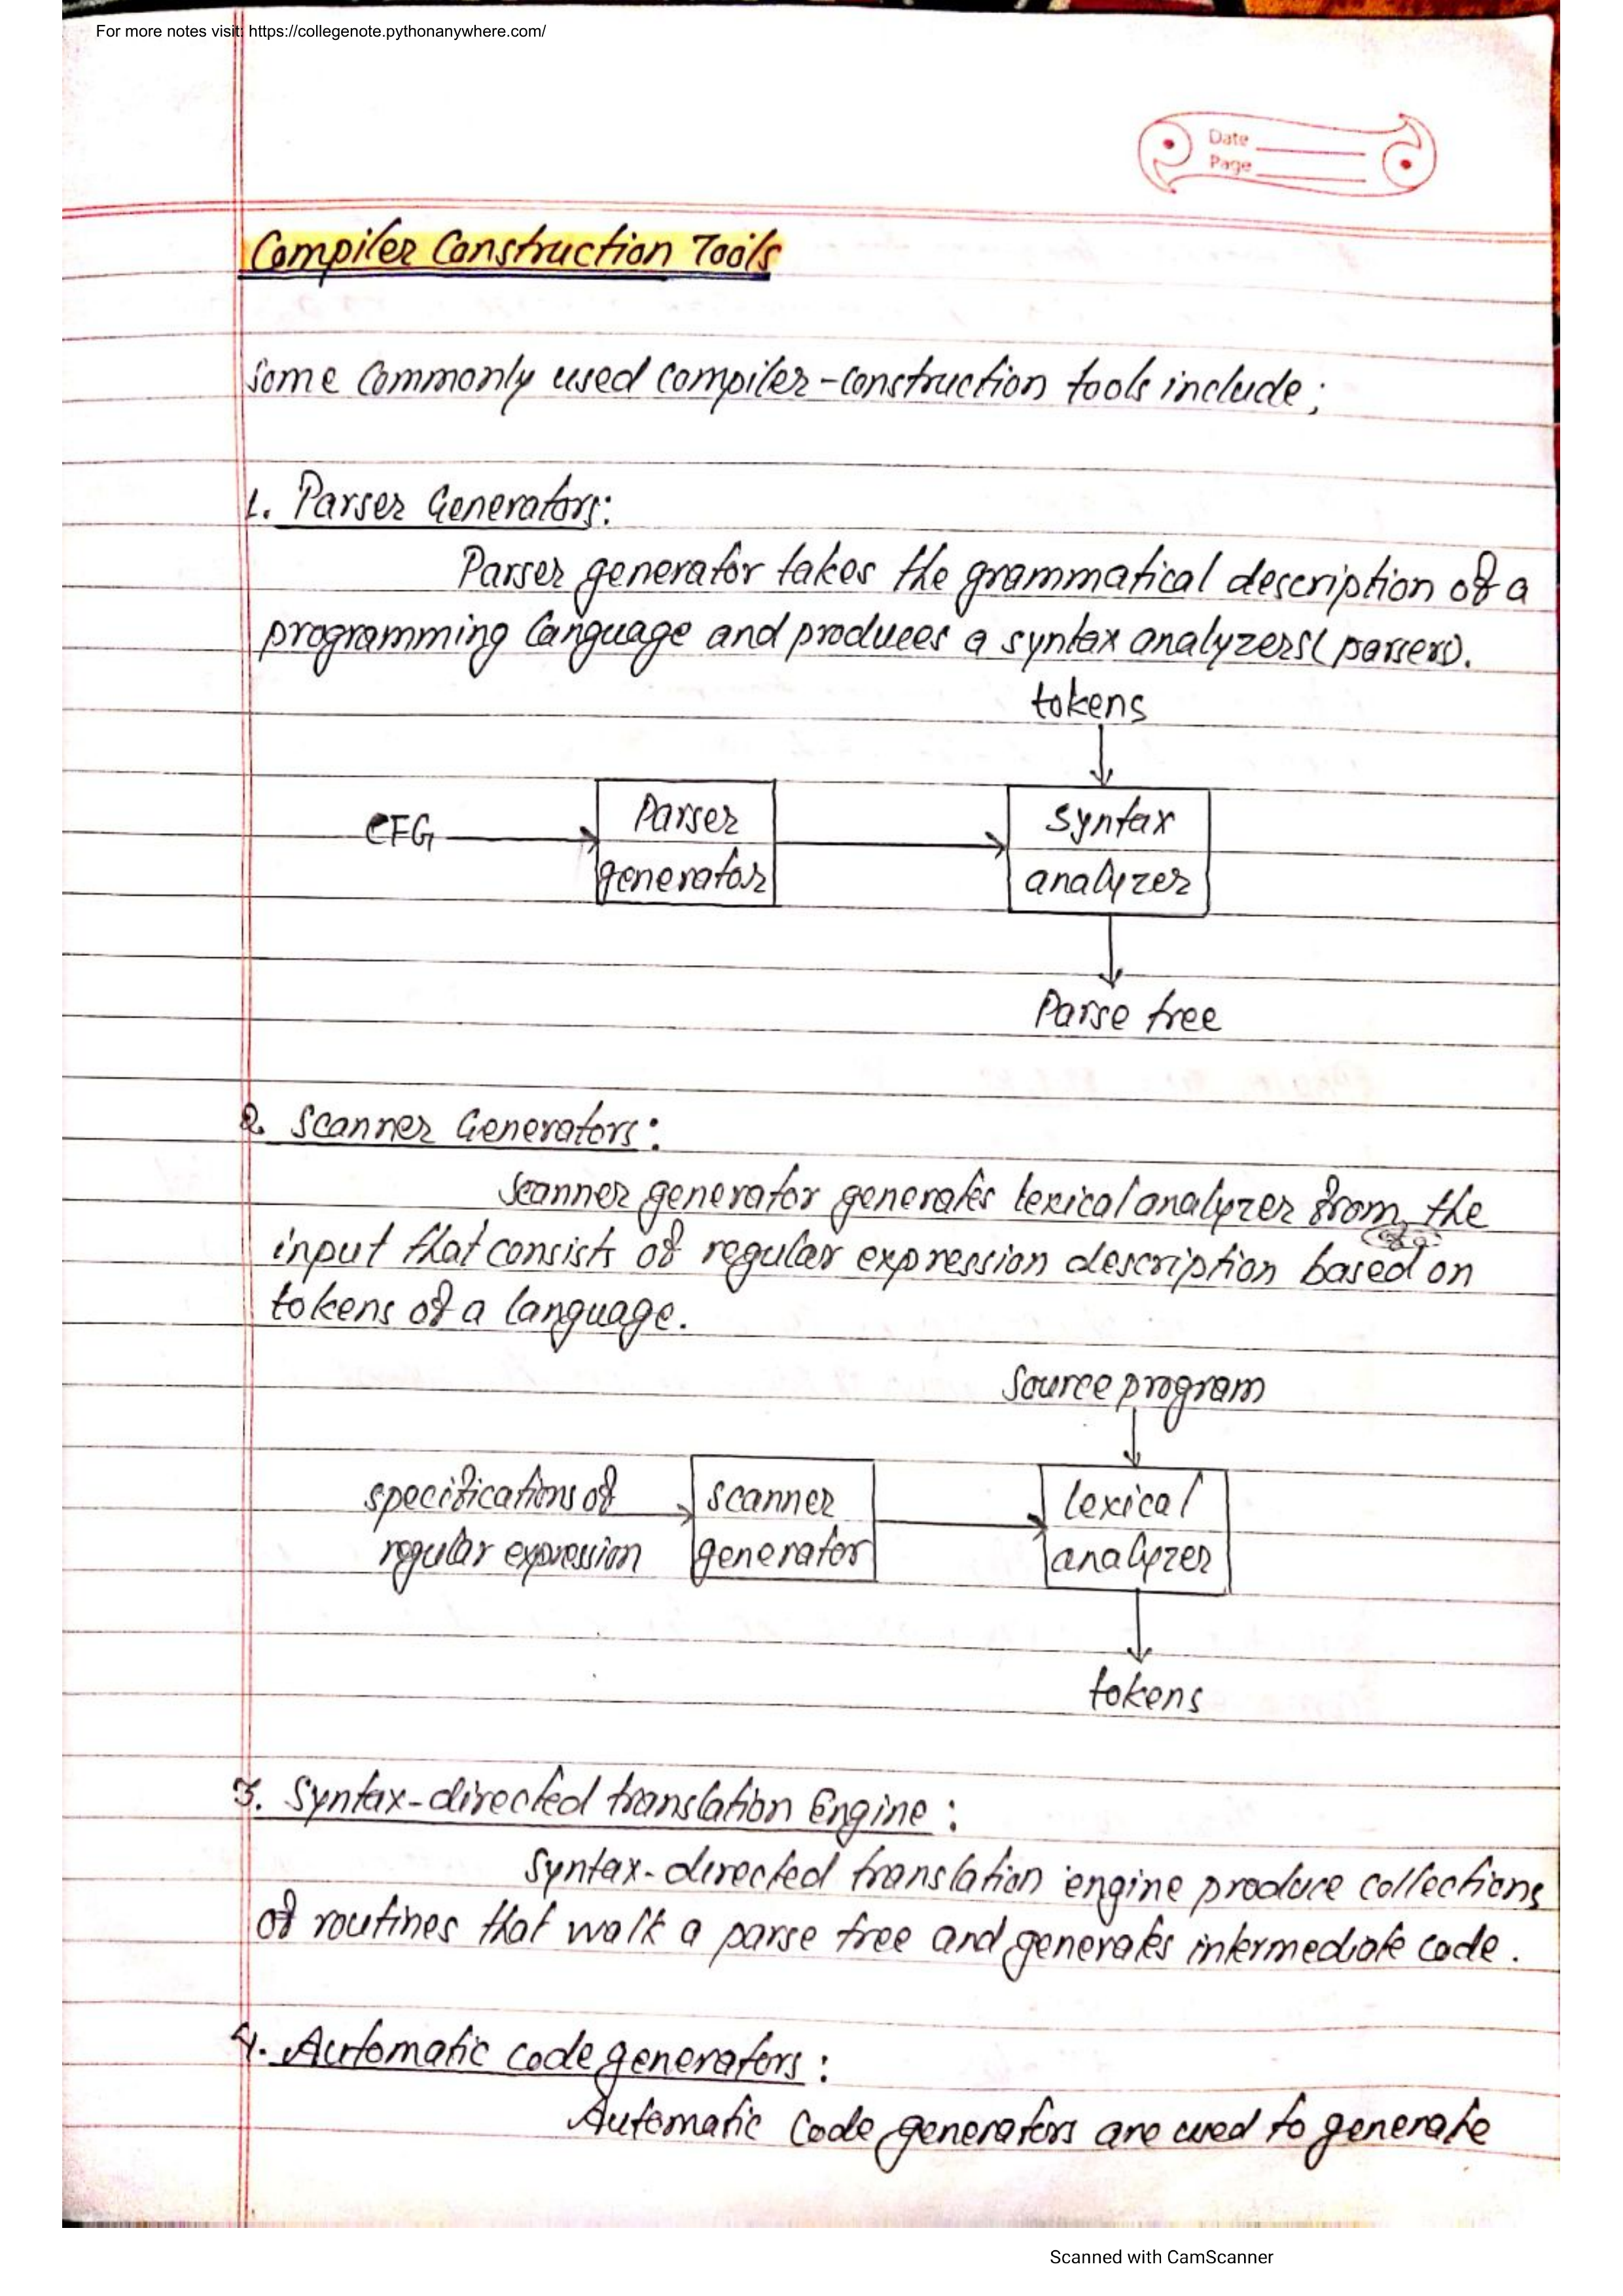 For more notes visit: https://collegenote.pythonanywhere.com/
Date
Page
Compiler Construction Tools
Some commonly used compiler-construction tools include;
1. Parser Generators:
Parser generator takes the grammatical description of a
programming language and produces a syntax analyzers(parsers).
tokens
CFG
Parser
generator
syntax
analyzer
Parse tree
2. Scanner Generators:
Scanner generator generates lexical analyzer from the
input that consists of regular expression description based on
tokens of a language.
Source program
specifications of
regular expression
scanner
generator
lexical
analyzer
tokens
3. Syntax-directed translation Engine:
Syntax-directed translation engine produce collections
of routines that walk a parse tree and generates intermediate code.
4. Automatic code generators:
Automatic code generators are used to generate
Scanned with CamScanner